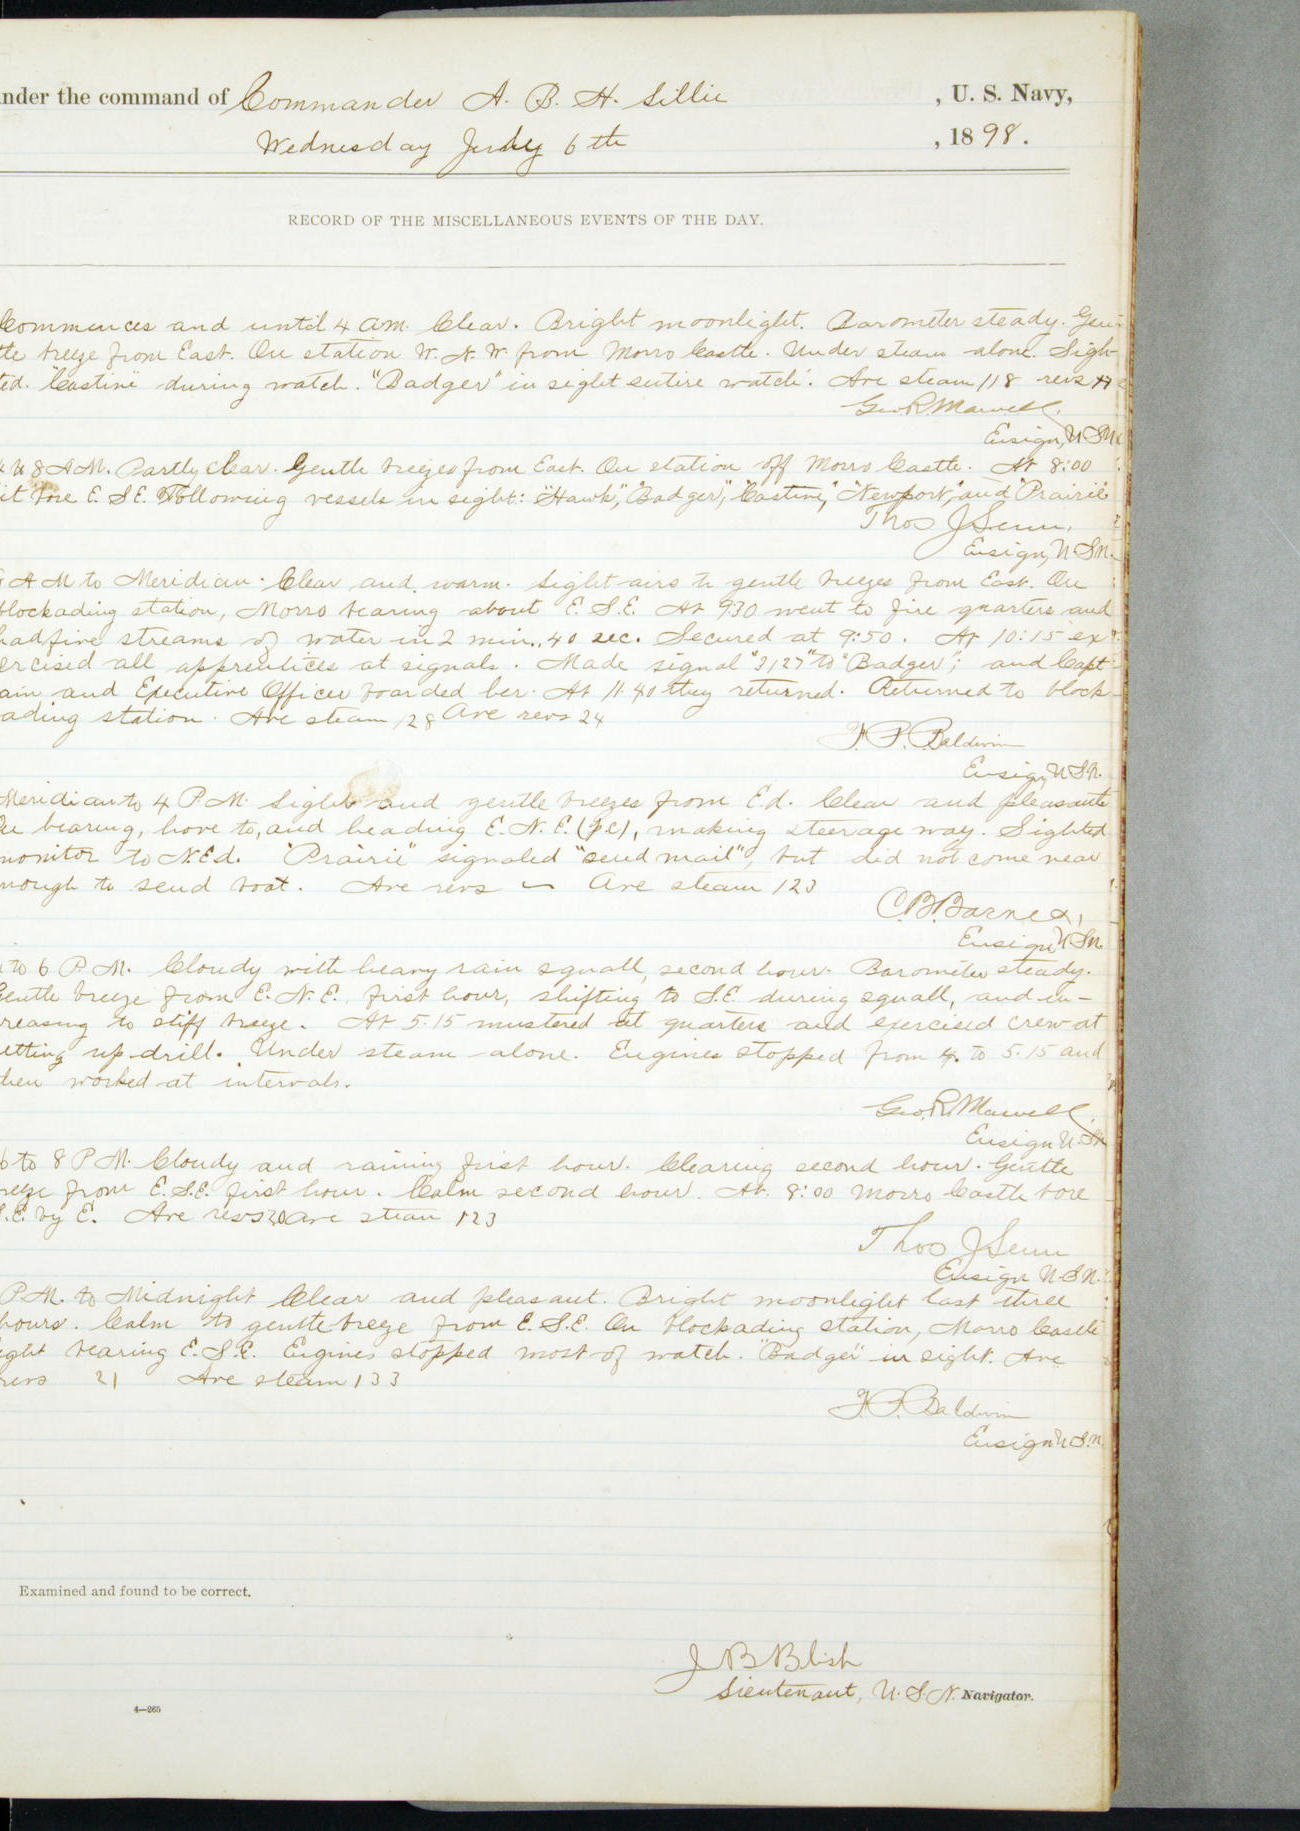 under the command of Commander A. B. H. Lillie , U. S. Navy,
Wednesday July 6th , 1898.
RECORD OF THE MISCELLANEOUS EVENTS OF THE DAY.
Commences and until 4 am. Clear. Bright moonlight. Barometer steady. Gen-
tle breeze from East. On station W. N. W. from Morro Castle. Under steam alone. Sigh-
ted. "Castine" during watch. "Badger" in sight entire watch. Ave steam 118 revs
Geo. R. Marvell.
Ensign, U.S.N.
4 to 8 AM. Partly clear. Gentle breezes from East. On station off Morro Castle. At 8:00
it bore E. S. E. Following vessels in sight: "Hawk", "Badger", "Castine," "Newport," and "Prairie"
Thos J Senn.
Ensign, U.S.N.
8 AM to Meridian. Clear and warm. Light airs to gentle breezes from East. On
blockading station, Morro bearing about E. S. E. At 9.30 went to fire quarters and
had five streams of water in 2 min., 40 sec. Secured at 9:50. At 10:15 ex
ercised all apprentices at signals. Made signal "3127" to "Badger"; and Capt-
ain and Executive Officer boarded her. At 11.40 they returned. Returned to block-
ading station. Ave steam 128 Ave revs 24
F. P. Baldwin
Ensign, U.S.N.
Meridian to 4 P.M. Light and gentle breezes from E'd. Clear and pleasant.
On bearing, hove to, and heading E. N. E. (p.c.), making steerage way. Sighted
monitor to N.E'd. "Prairie" signaled "send mail", but did not come near
enough to send boat. Ave revs — Ave steam 123
C.B. Barnes,
Ensign U.S.N.
4 to 6 P.M. Cloudy with heavy rain squall, second hour. Barometer steady.
Gentle breeze from E. N. E. first hour, shifting to S.E. during squall, and in-
creasing to stiff breeze. At 5.15 mustered at quarters and exercised crew at
setting up drill. Under steam alone. Engines stopped from 4. to 5.15 and
then worked at intervals.
Geo. R. Marvell.
Ensign U.S.N.
6 to 8 P.M. Cloudy and raining first hour. Clearing second hour. Gentle
breeze from E. S.E. first hour. Calm second hour. At 8:00 Morro Castle bore
S.E. by E. Ave revs 20 ave steam 123
Thos J Senn
Ensign U.S.N.
P.M. to Midnight Clear and pleasant. Bright moonlight last three
hours. Calm to gentle breeze from E. S.E. On blockading station, Morro Castle
light bearing E. S. E. Engines stopped most of watch. "Badger" in sight. Ave
revs 21 Ave steam 133
F. P. Baldwin
Ensign U.S.N.
Examined and found to be correct.
J B Blish
Lieutenant, U. S. N. Navigator.
4—265